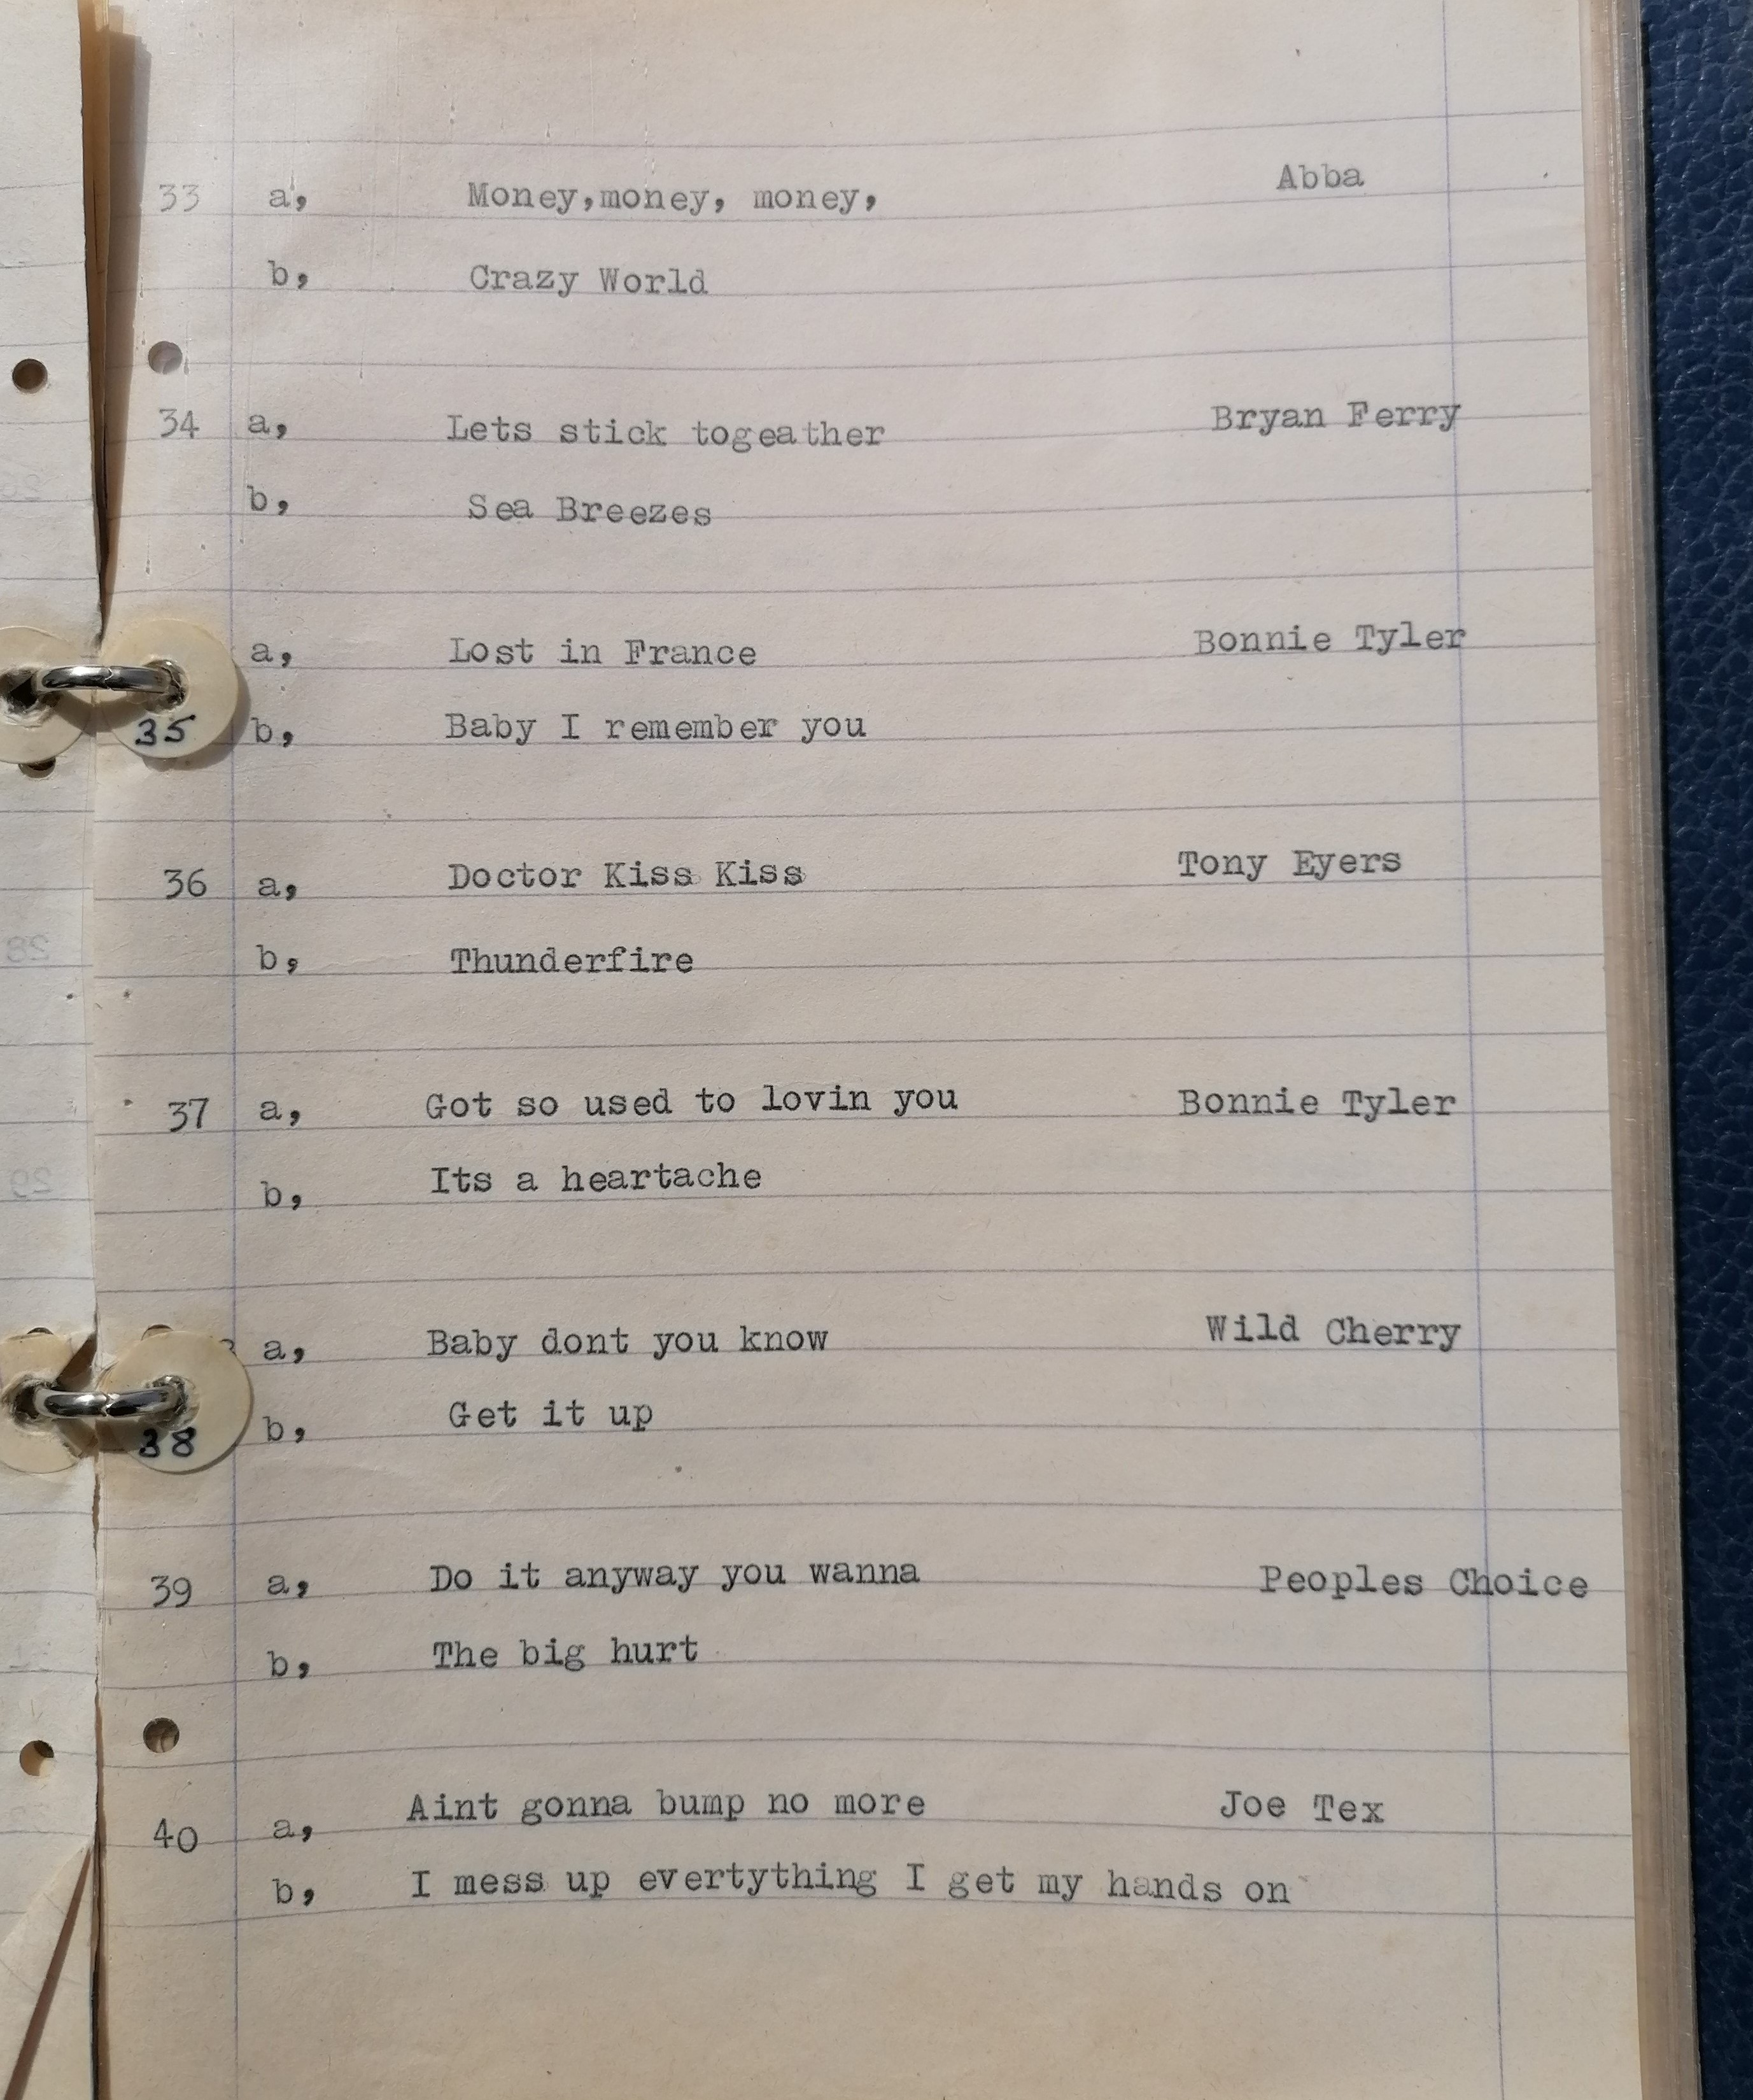 33 a, Money,money, money, Abba
b, Crazy World
34 a, Lets stick togeather Bryan Ferry
b, Sea Breezes
a, Lost in France Bonnie Tyler
35 b, Baby I remember you
36 a, Doctor Kiss Kiss Tony Eyers
b, Thunderfire
37 a, Got so used to lovin you Bonnie Tyler
b, Its a heartache
a, Baby dont you know Wild Cherry
38 b, Get it up
39 a, Do it anyway you wanna Peoples Choice
b, The big hurt
40 a, Aint gonna bump no more Joe Tex
b, I mess up evertything I get my hands on